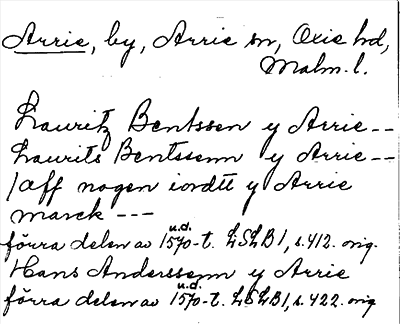 Arrie, by, Arrie sn, Oxie hd,
Malm. l.
Lauritz Bentssen y Arrie --
Laurits Bentssenn y Arrie --
/aff nogen iordtt y Arrie
marck ---
u.d.
förra delen av 1570-t. LSLB1, s. 412. orig.
Hans Anderssenn y Arrie
u.d.
förra delen av 1570-t. LSLB1, s. 422. orig